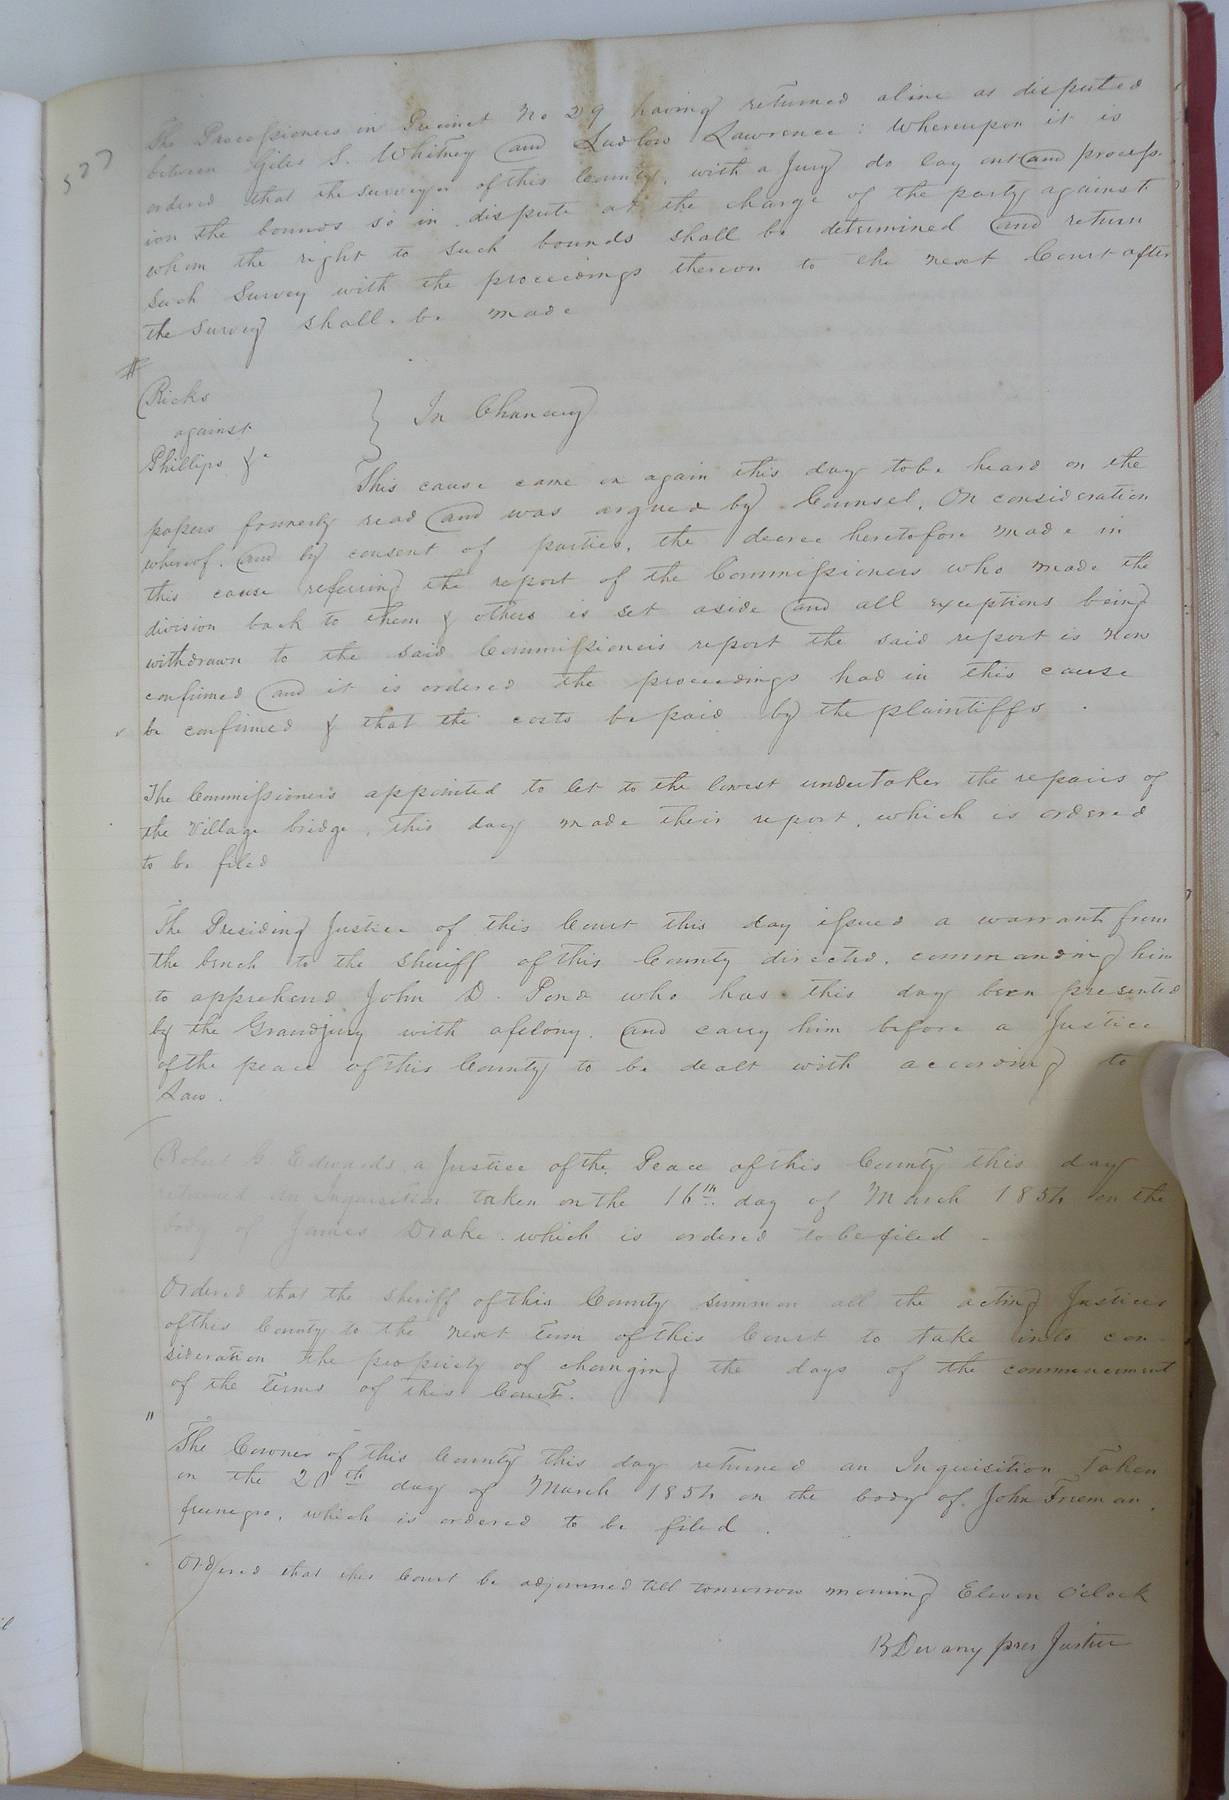 577
The Processioners in Precinct No 29 having returned aline as disputed
between Giles S. Whitney and Ludlow Lawrence : Whereupon it is
ordered that the surveyor of this County, with a Jury do lay out and process-
ion the bounds so in dispute at the charge of the party against
whom the right to such bounds shall be determined and return
such Survey with the proceedings thereon to the next Court after
the survey shall be made
#
Ricks
against } In Chancery
Phillips &c
This cause came on again this day tobe heard on the
papers formerly read and was argued by Counsel. On consideration
whereof, and by consent of parties, the decree heretofore made in
this cause referring the report of the Commissioners who made the
division back to them & others is set aside and all exceptions being
withdrawn to the said Commissioners report the said report is now
confirmed and it is ordered the proceedings had in this cause
be confirmed & that the costs be paid by the plaintiffs .
The Commissioners appointed to let to the lowest undertaker the repairs of
the Village bridge, this day made their report, which is ordered
to be filed
The Presiding Justice of this Court this day issued a warrant from
the bench to the sheriff of this County directed, commanding him
to apprehend John D. Pond who has this day been presented
by the Grandjury with afelony, and carry him before a Justice
of the peace of this County to be dealt with according to
Law.
Robert G. Edwards, a Justice of the Peace of this County this day
returned an Inquisition taken on the 16th day of March 1854 on the
body of James Drake. which is ordered to be filed -
Ordered that the sheriff of this County summon all the acting Justices
of this County to the next Term of this Court to take into con-
sideration the propriety of changing the days of the commencement
of the Terms of this Court.
"
The Coroner of this County this day returned an Inquisition Taken
on the 20th day of March 1854 on the body of John Freeman,
freenegro, which is ordered to be filed .
Ordered that this Court be adjourned till tomorrow morning Eleven O'clock
B Devany pres Justice